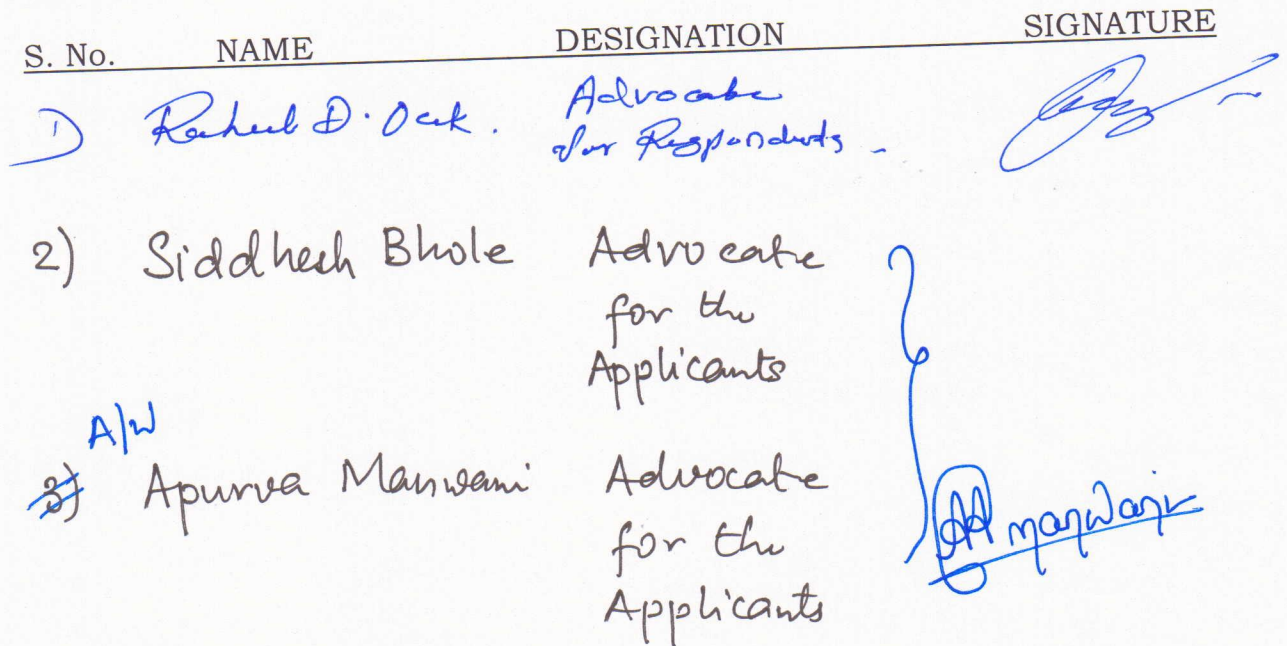 S. No. NAME DESIGNATION SIGNATURE
1) D. Oak. Advocate
for Respondents -
2) Siddhesh Bhole Advocate
for the
Applicants
A/W
3) Apurva Manwani Advocate
for the
Applicants
AA manwani